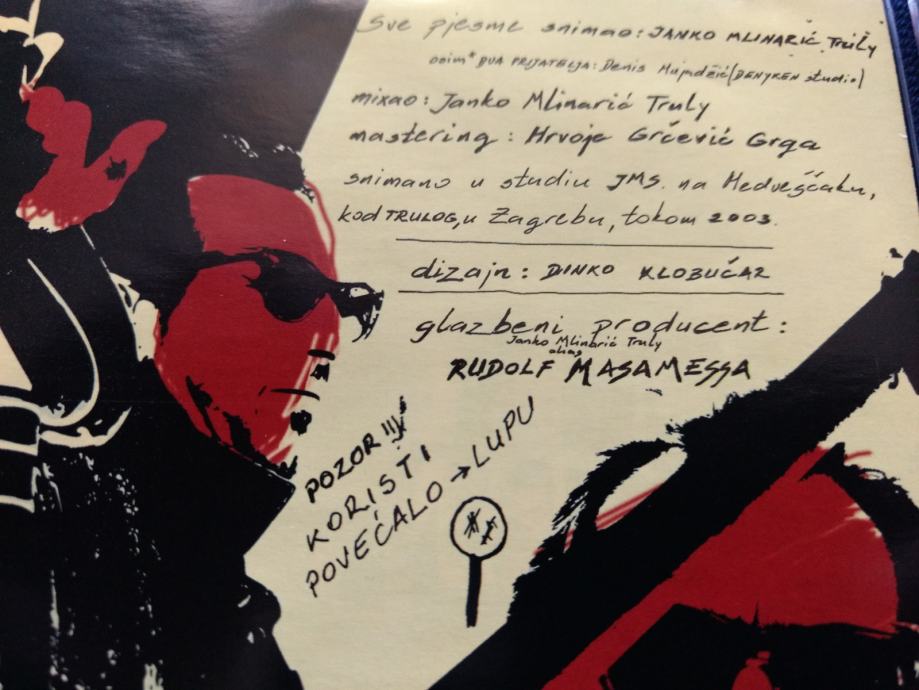 Sve pjesme snimao: JANKO MLINARIĆ Truly
osim* DVA PRIJATELJA: Denis Mujadžić (DENYKEN studio)
mixao: Janko Mlinarić Truly
mastering: Hrvoje Grčević Grga
snimano u studiu JMS. na Medveščaku,
kod TRULOG, u Zagrebu, tokom 2003.
dizajn: DINKO KLOBUČAR
glazbeni producent:
Janko Mlinarić Truly
alias
RUDOLF MASAMESSA
POZOR!!!
KORISTI
POVEĆALO → LUPU